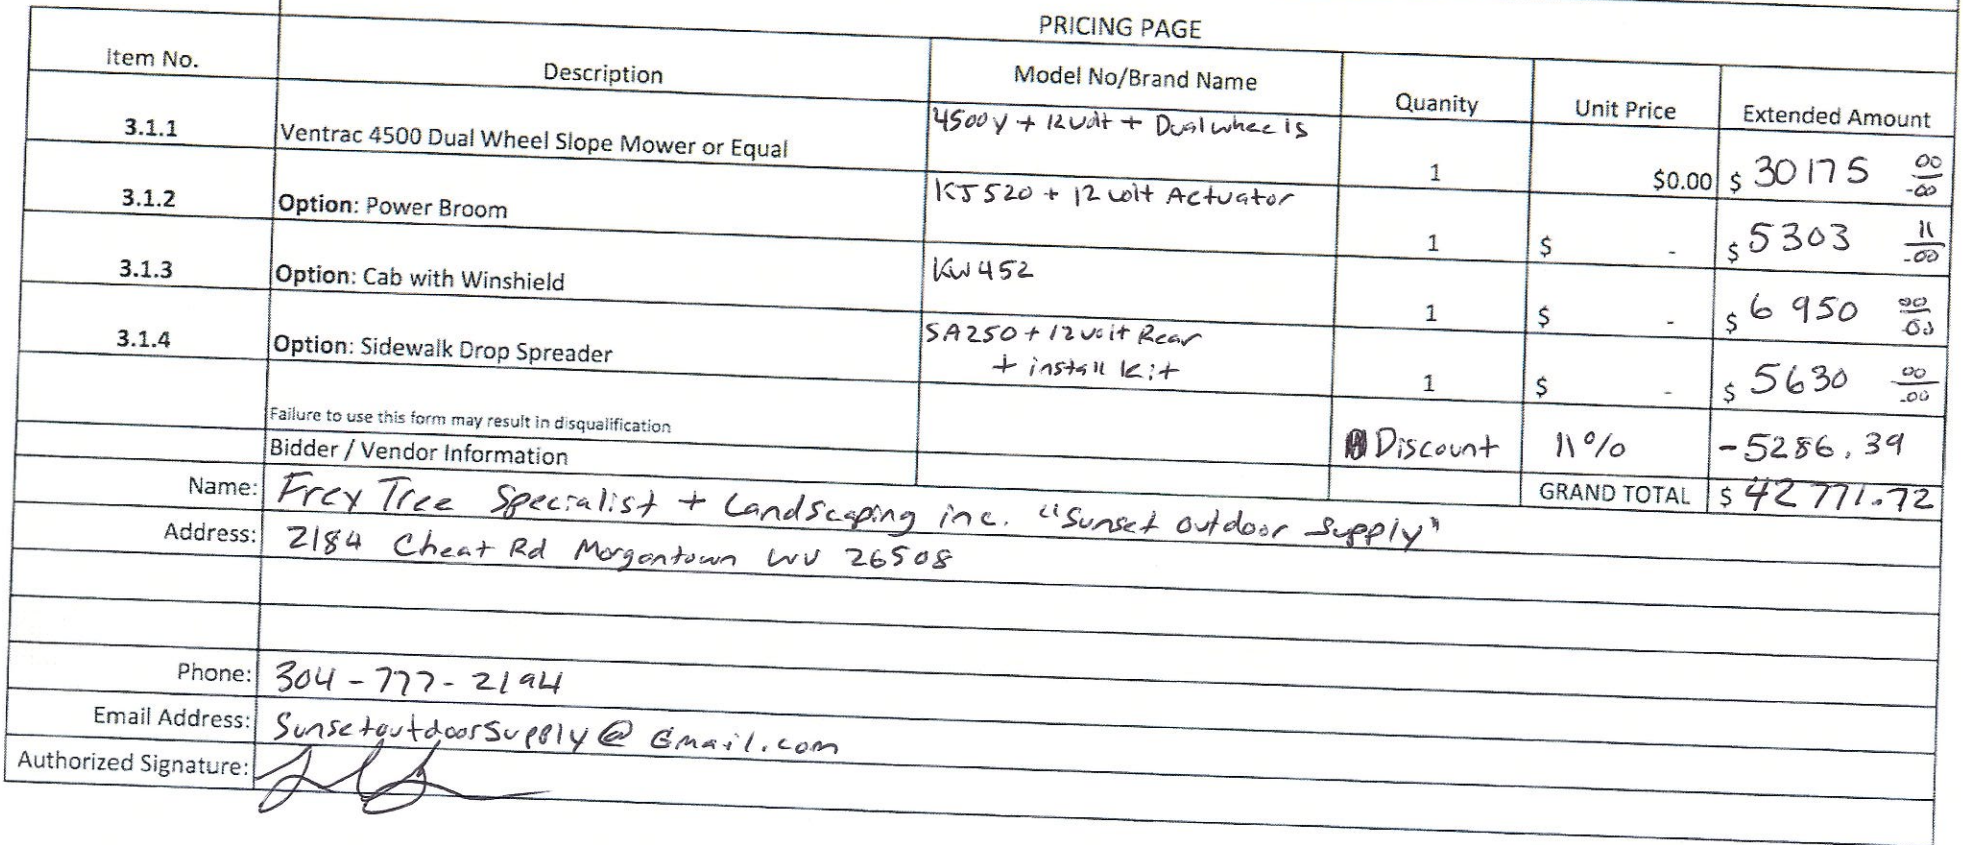 PRICING PAGE
Item No. Description Model No/Brand Name Quanity Unit Price Extended Amount
3.1.1 Ventrac 4500 Dual Wheel Slope Mower or Equal 4500Y + 12volt + Dualwheels 1 $0.00 $ 30175 00/.00
3.1.2 Option: Power Broom KJ520 + 12 volt Actuator 1 $ - $ 5303 11/.00
3.1.3 Option: Cab with Winshield KW452 1 $ - $ 6950 00/.00
3.1.4 Option: Sidewalk Drop Spreader SA250 + 12volt Rear
+ install kit 1 $ - $ 5630 00/.00
Failure to use this form may result in disqualification
Discount 11% -5286.39
Bidder / Vendor Information
GRAND TOTAL $ 42771.72
Name: Frey Tree Specialist + Landscaping inc. "Sunset outdoor Supply"
Address: 2184 Cheat Rd Morgantown WV 26508
Phone: 304-777-2194
Email Address: SunsetoutdoorSupply@Gmail.com
Authorized Signature: